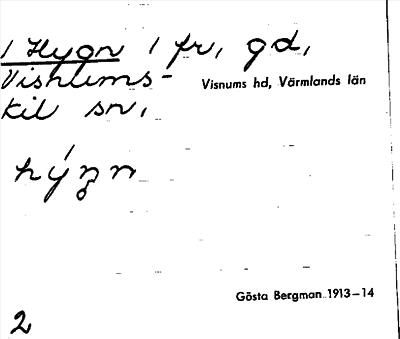 1 Hygn 1 fr, gd,
Visnums- Visnums hd, Värmlands län
kil sn,
Gösta Bergman 1913–14
2